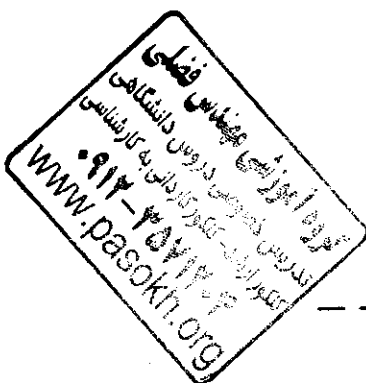 گروه آموزشی مهندس فضلی
تدریس خصوصی دروس دانشگاهی
کنکور ارشد-کنکور کاردانی به کارشناسی
www.pasokh.org